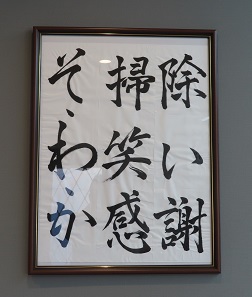 そ・わ・か
掃除
笑い
感謝